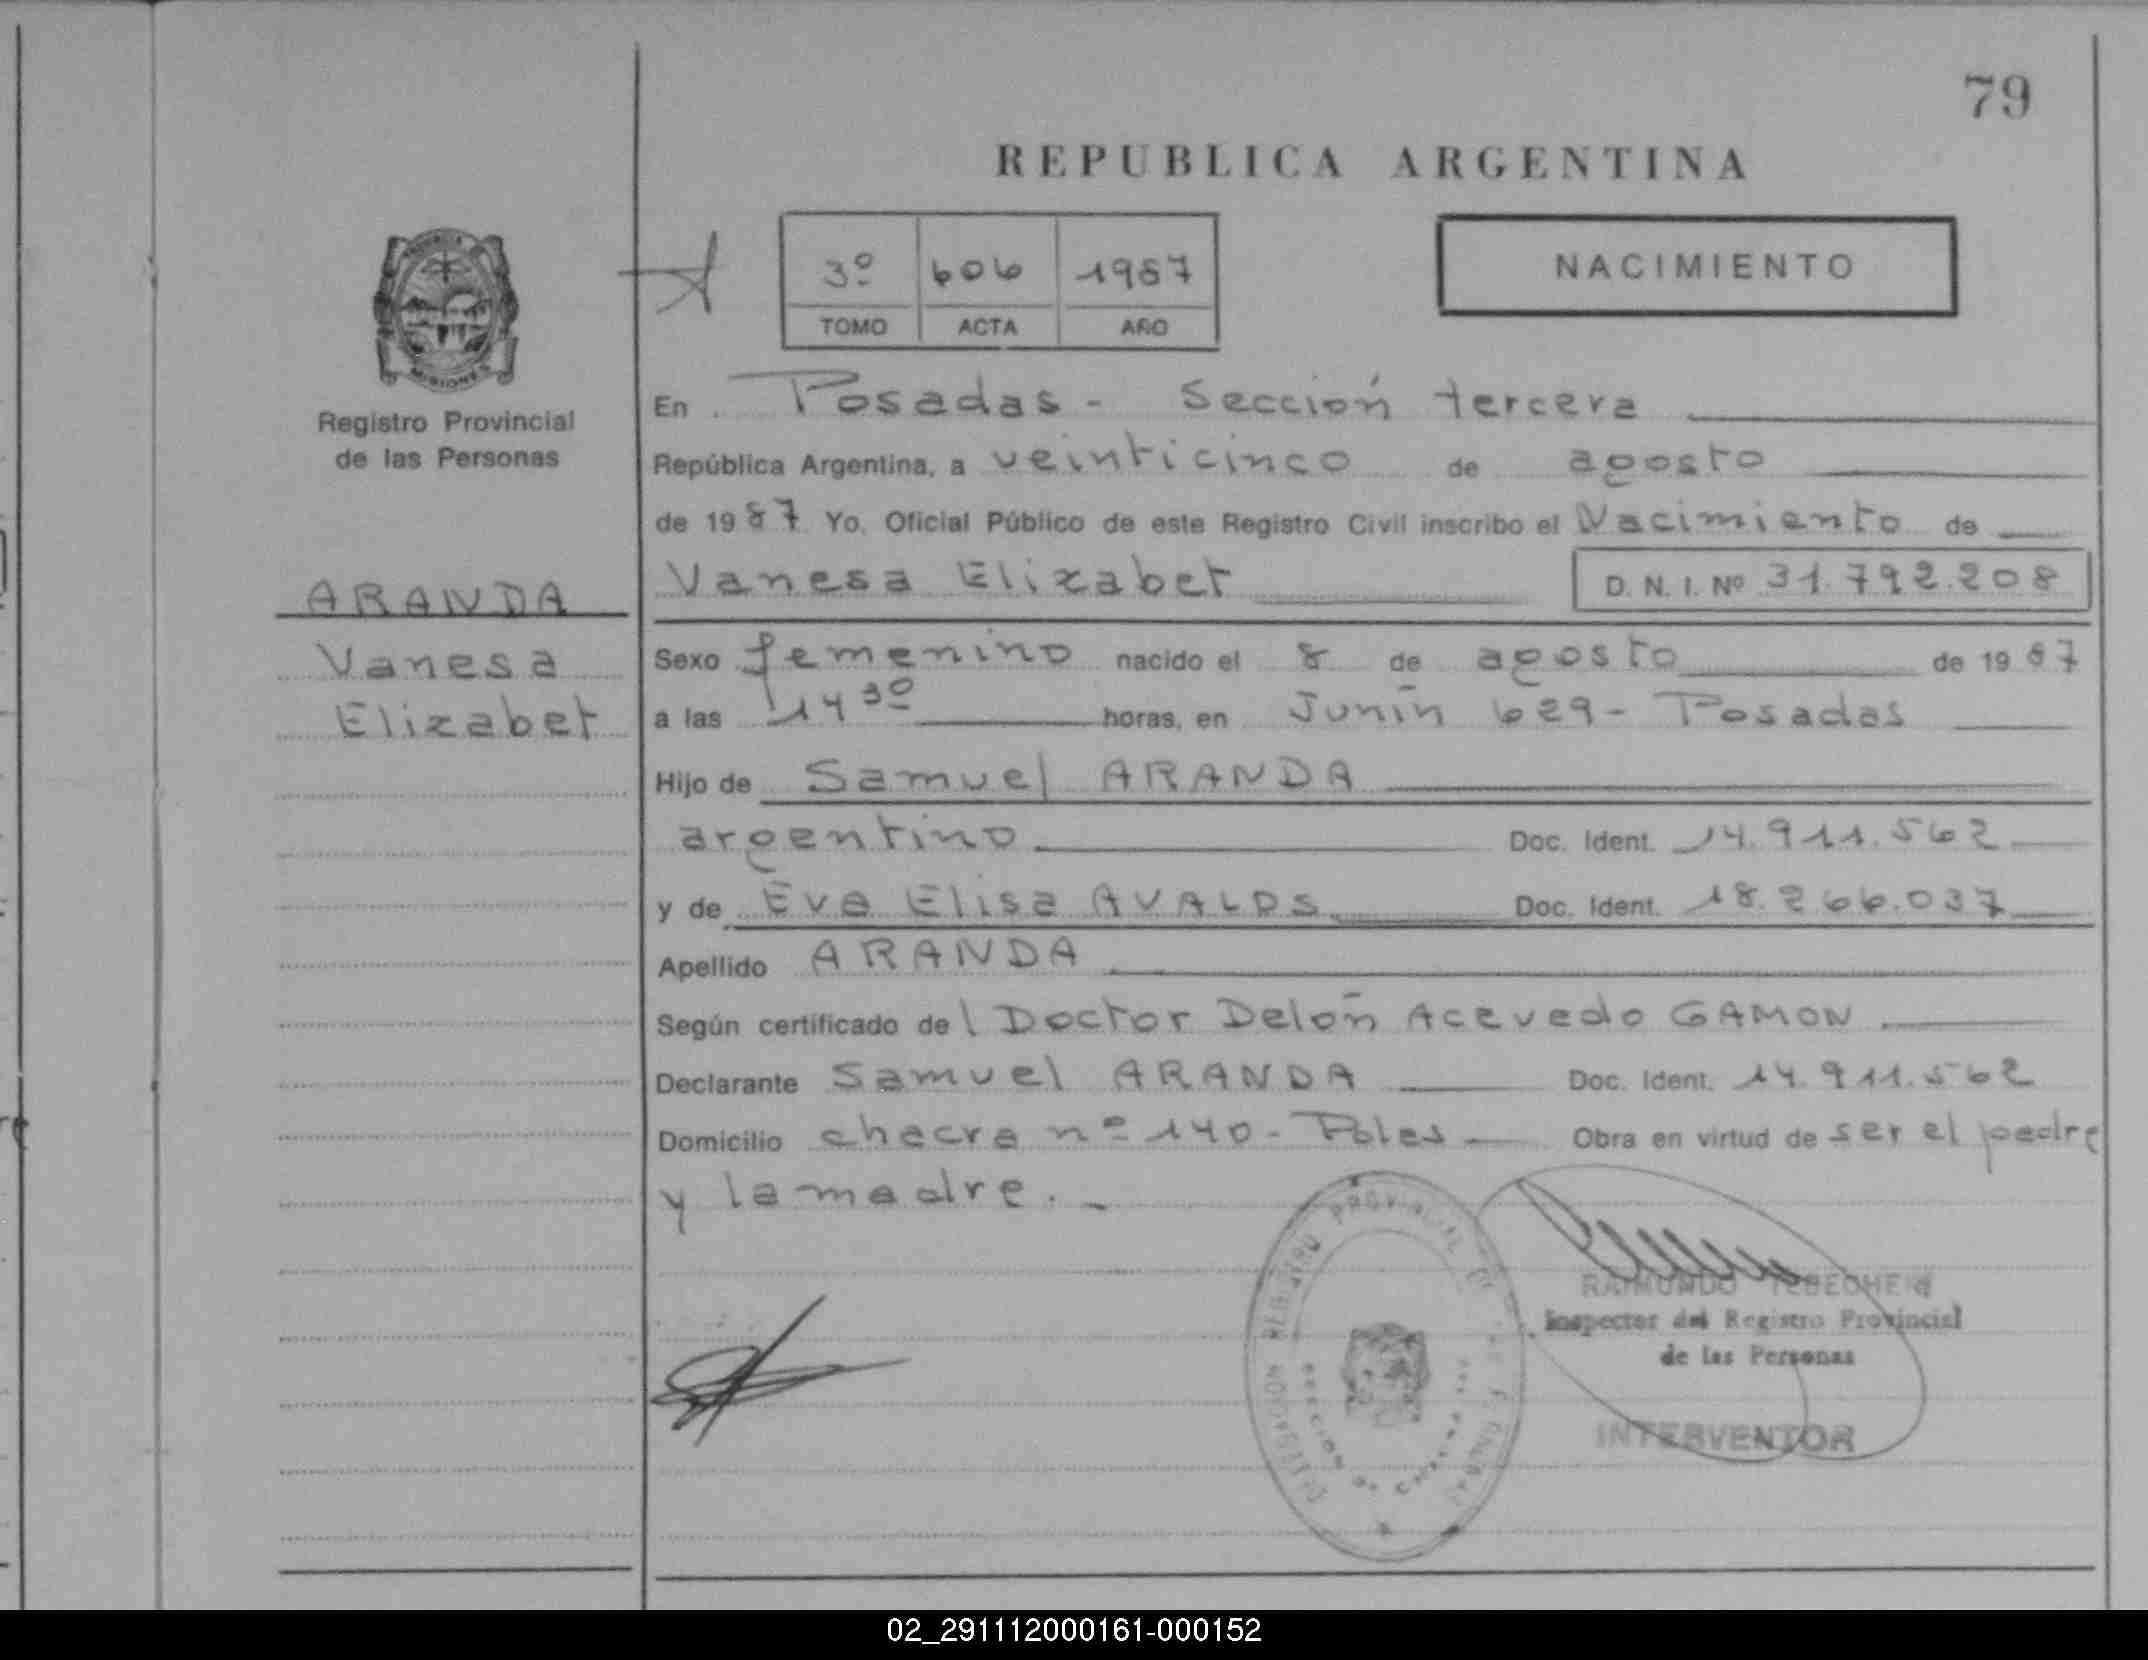 79
REPUBLICA ARGENTINA
3º 606 1987
TOMO ACTA AÑO
NACIMIENTO
MISIONES
Registro Provincial
de las Personas
ARANDA
Vanesa
Elizabet
En Posadas - Sección tercera
República Argentina, a veinticinco de agosto
de 1987 Yo, Oficial Público de este Registro Civil inscribo el Nacimiento de
Vanesa Elizabet D. N. I. Nº 31.792.208
Sexo femenino nacido el 8 de agosto de 1987
a las 14 30 horas, en Junín 629 - Posadas
Hijo de Samuel ARANDA
argentino Doc. Ident. 14.911.562
y de Eva Elisa AVALOS Doc. Ident. 18.266.037
Apellido ARANDA
Según certificado del Doctor Delón Acevedo GAMON
Declarante Samuel ARANDA Doc. Ident. 14.911.562
Domicilio chacra nº 140 - Pdas Obra en virtud de ser el padre
y la madre. -
REGISTRO PROVINCIAL DE LAS PERSONAS
RAIMUNDO
Inspector del Registro Provincial
de las Personas
INTERVENTOR
02_291112000161-000152